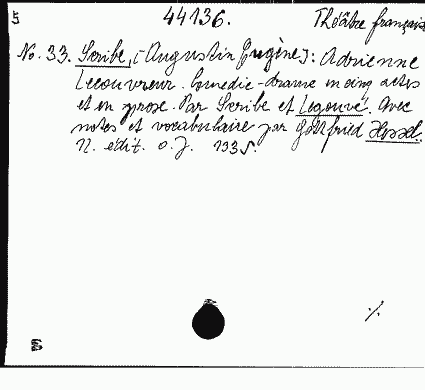 5 44136. Théâtre français
No. 33. Scribe, [Augustin Eugène]: Adrienne
Lecouvreur. Comédie-drame en cinq actes
et en prose. Par Scribe et Legouvé. Avec
notes et vocabulaire par Gottfried
N. édit. o. J. 193 S.
./.